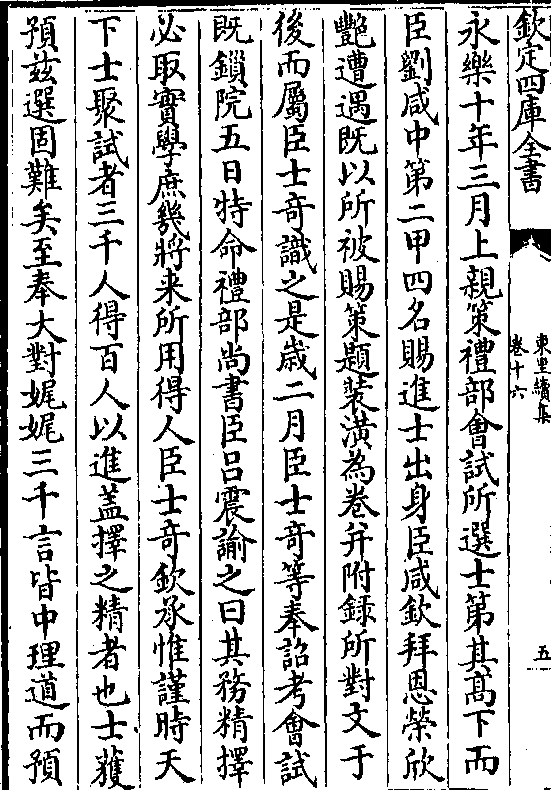 欽定四庫全書
東里續集
卷十六
五
永樂十年三月上親策禮部會試所選士第其髙下而
臣劉咸中第二甲四名賜進士出身臣咸欽拜恩榮欣
艷遭遇既以所被賜策題裝潢為卷并附録所對文于
後而屬臣士竒識之是歳二月臣士竒等奉詔考會試
既鎖院五日特命禮部尚書臣吕震諭之曰其務精擇
必取實學庶幾將来所用得人臣士竒欽承惟謹時天
下士聚試者三千人得百人以進盖擇之精者也士獲
預兹選固難矣至奉大對娓娓三千言皆中理道而預